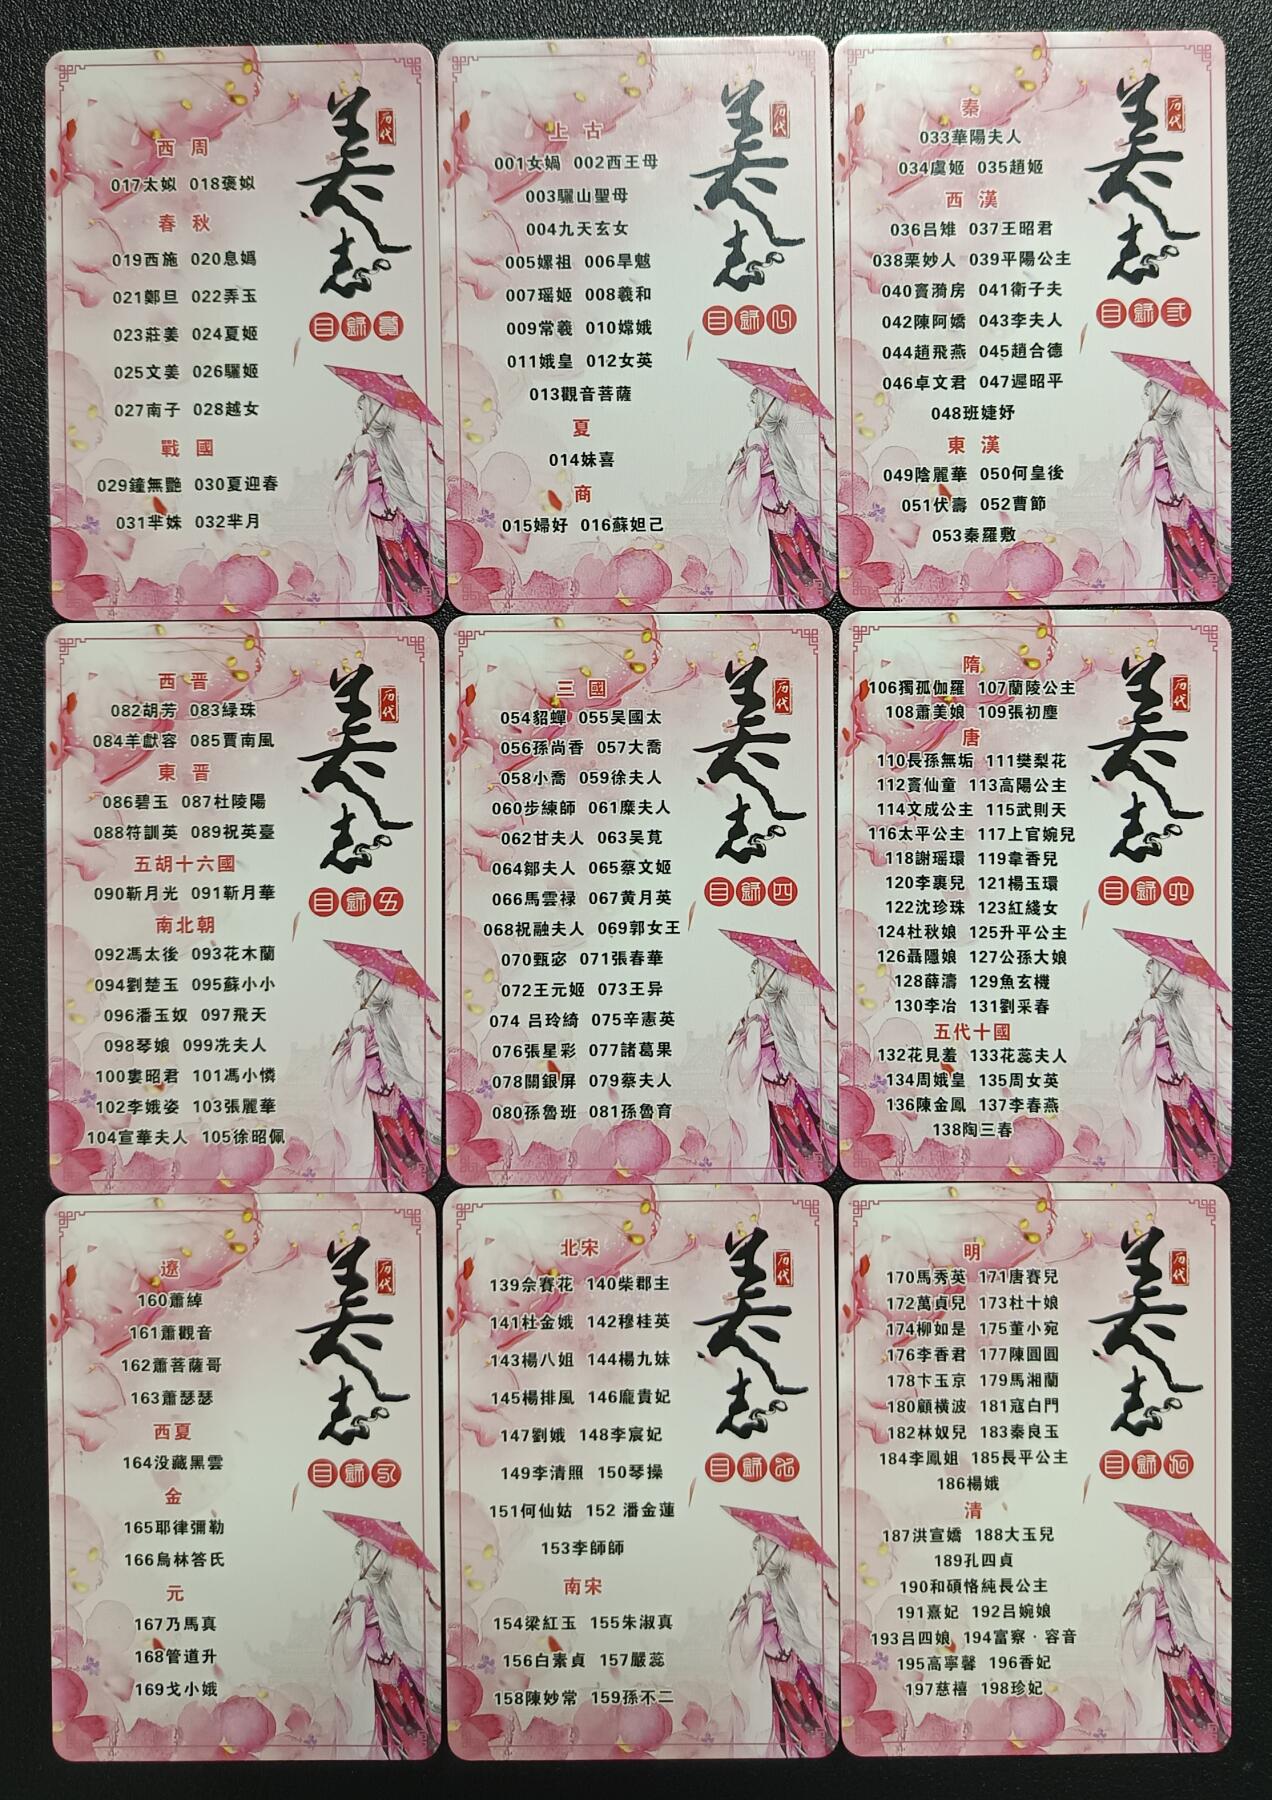 西周
017太姒 018褒姒
春秋
019西施 020息媯
021鄭旦 022弄玉
023莊姜 024夏姬
025文姜 026驪姬
027南子 028越女
戰國
029鐘無艷 030夏迎春
031芈姝 032芈月
历代
美人志
目錄貳
上古
001女媧 002西王母
003驪山聖母
004九天玄女
005嫘祖 006旱魃
007瑶姬 008羲和
009常羲 010嫦娥
011娥皇 012女英
013觀音菩薩
夏
014妺喜
商
015婦好 016蘇妲己
历代
美人志
目錄
秦
033華陽夫人
034虞姬 035趙姬
西漢
036吕雉 037王昭君
038栗妙人 039平陽公主
040竇漪房 041衛子夫
042陳阿嬌 043李夫人
044趙飛燕 045趙合德
046卓文君 047遲昭平
048班婕妤
東漢
049陰麗華 050何皇後
051伏壽 052曹節
053秦羅敷
历代
美人志
目錄
西晋
082胡芳 083緑珠
084羊獻容 085賈南風
東晋
086碧玉 087杜陵陽
088符訓英 089祝英臺
五胡十六國
090靳月光 091靳月華
南北朝
092馮太後 093花木蘭
094劉楚玉 095蘇小小
096潘玉奴 097飛天
098琴娘 099冼夫人
100婁昭君 101馮小憐
102李娥姿 103張麗華
104宣華夫人 105徐昭佩
历代
美人志
目錄五
三國
054貂蟬 055吴國太
056孫尚香 057大喬
058小喬 059徐夫人
060步練師 061糜夫人
062甘夫人 063吴莧
064鄒夫人 065蔡文姬
066馬雲禄 067黄月英
068祝融夫人 069郭女王
070甄宓 071張春華
072王元姬 073王异
074 吕玲綺 075辛憲英
076張星彩 077諸葛果
078關銀屏 079蔡夫人
080孫魯班 081孫魯育
历代
美人志
目錄四
隋
106獨孤伽羅 107蘭陵公主
108蕭美娘 109張初塵
唐
110長孫無垢 111樊梨花
112竇仙童 113高陽公主
114文成公主 115武則天
116太平公主 117上官婉兒
118謝瑶環 119韋香兒
120李裹兒 121楊玉環
122沈珍珠 123紅綫女
124杜秋娘 125升平公主
126聶隱娘 127公孫大娘
128薛濤 129魚玄機
130李冶 131劉采春
五代十國
132花見羞 133花蕊夫人
134周娥皇 135周女英
136陳金鳳 137李春燕
138陶三春
历代
美人志
目錄六
遼
160蕭綽
161蕭觀音
162蕭菩薩哥
163蕭瑟瑟
西夏
164没藏黑雲
金
165耶律彌勒
166烏林答氏
元
167乃馬真
168管道升
169戈小娥
历代
美人志
目錄
北宋
139佘賽花 140柴郡主
141杜金娥 142穆桂英
143楊八姐 144楊九妹
145楊排風 146龐貴妃
147劉娥 148李宸妃
149李清照 150琴操
151何仙姑 152 潘金蓮
153李師師
南宋
154梁紅玉 155朱淑真
156白素貞 157嚴蕊
158陳妙常 159孫不二
历代
美人志
目錄
明
170馬秀英 171唐賽兒
172萬貞兒 173杜十娘
174柳如是 175董小宛
176李香君 177陳圓圓
178卞玉京 179馬湘蘭
180顧橫波 181寇白門
182林奴兒 183秦良玉
184李鳳姐 185長平公主
186楊娥
清
187洪宣嬌 188大玉兒
189孔四貞
190和碩恪純長公主
191熹妃 192吕婉娘
193吕四娘 194富察·容音
195高寧馨 196香妃
197慈禧 198珍妃
历代
美人志
目錄